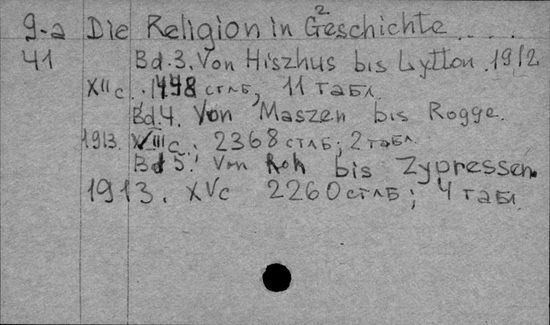 9-a Die Religion in Geschichte ....
2
41 Bd.3. Von Hiszhus bis Lytton 1912
XII c. 1498 стлб, 11 табл.
Bd 4. Von Maszen bis Rogge.
1913. VIII c. 2368 стлб; 2 табл.
Bd 5. Von Roh bis Zypressen.
1913. XV c 2260 стлб; 4 табл.